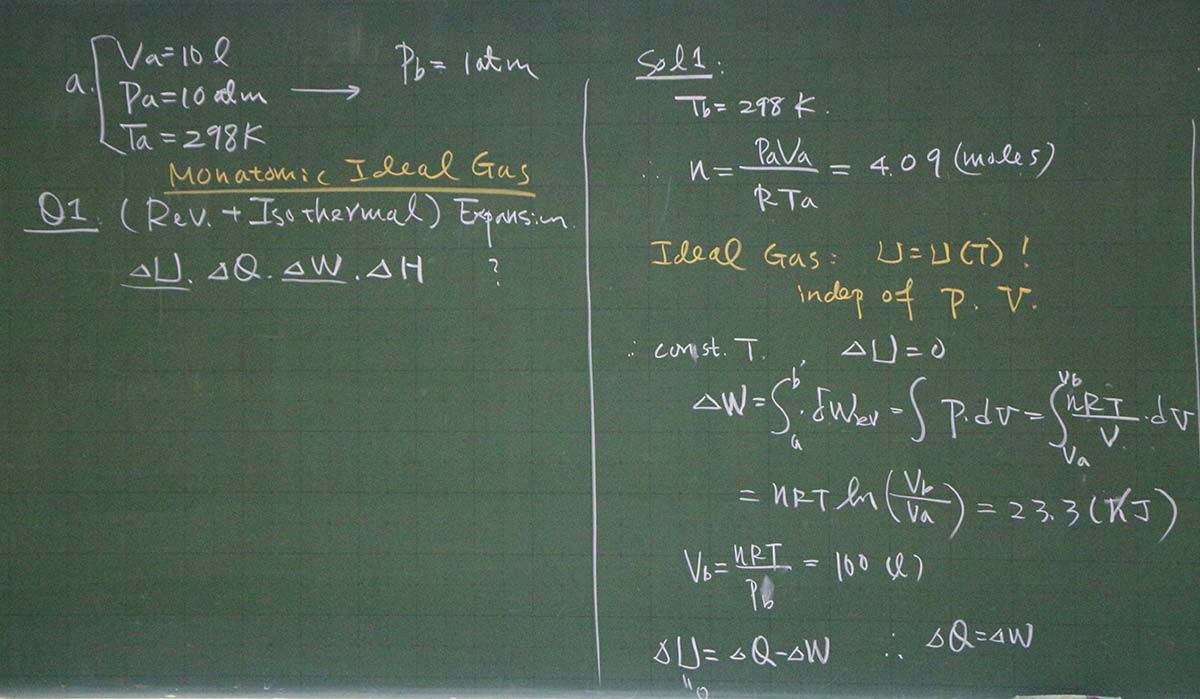 a. Va=10 l
Pa=10 atm → Pb= 1atm
Ta=298K
Monatomic Ideal Gas
Q1. (Rev. + Isothermal) Expansion.
ΔU. ΔQ. ΔW. ΔH ?
Sol 1:
Tb= 298 K.
∴ n= PaVa / RTa = 4.09 (moles)
Ideal Gas: U=U(T)!
indep of P. V.
∴ const. T. , ΔU=0
ΔW= ∫_a^b δWrev = ∫ P.dV = ∫_Va^Vb nRT/V . dV
= nRT ln(Vb/Va) = 23.3 (KJ)
Vb= nRT/Pb = 100 (l)
ΔU= ΔQ-ΔW ∴ ΔQ=ΔW
"0